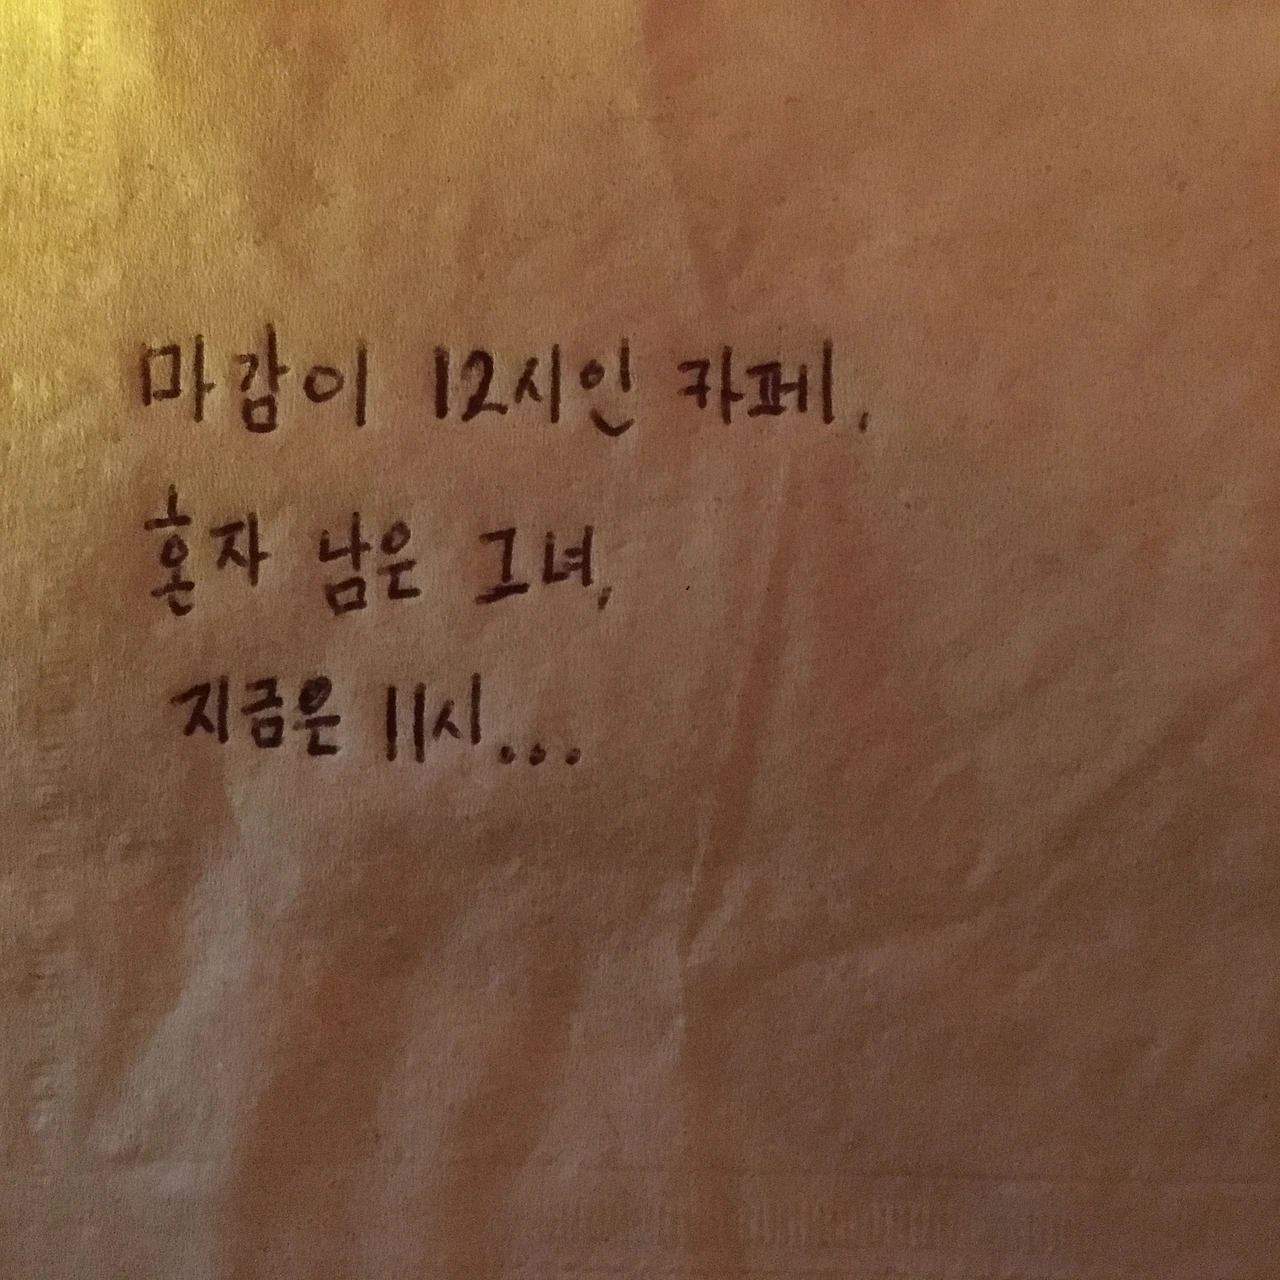 마감이 12시인 카페,
혼자 남은 그녀,
지금은 11시...